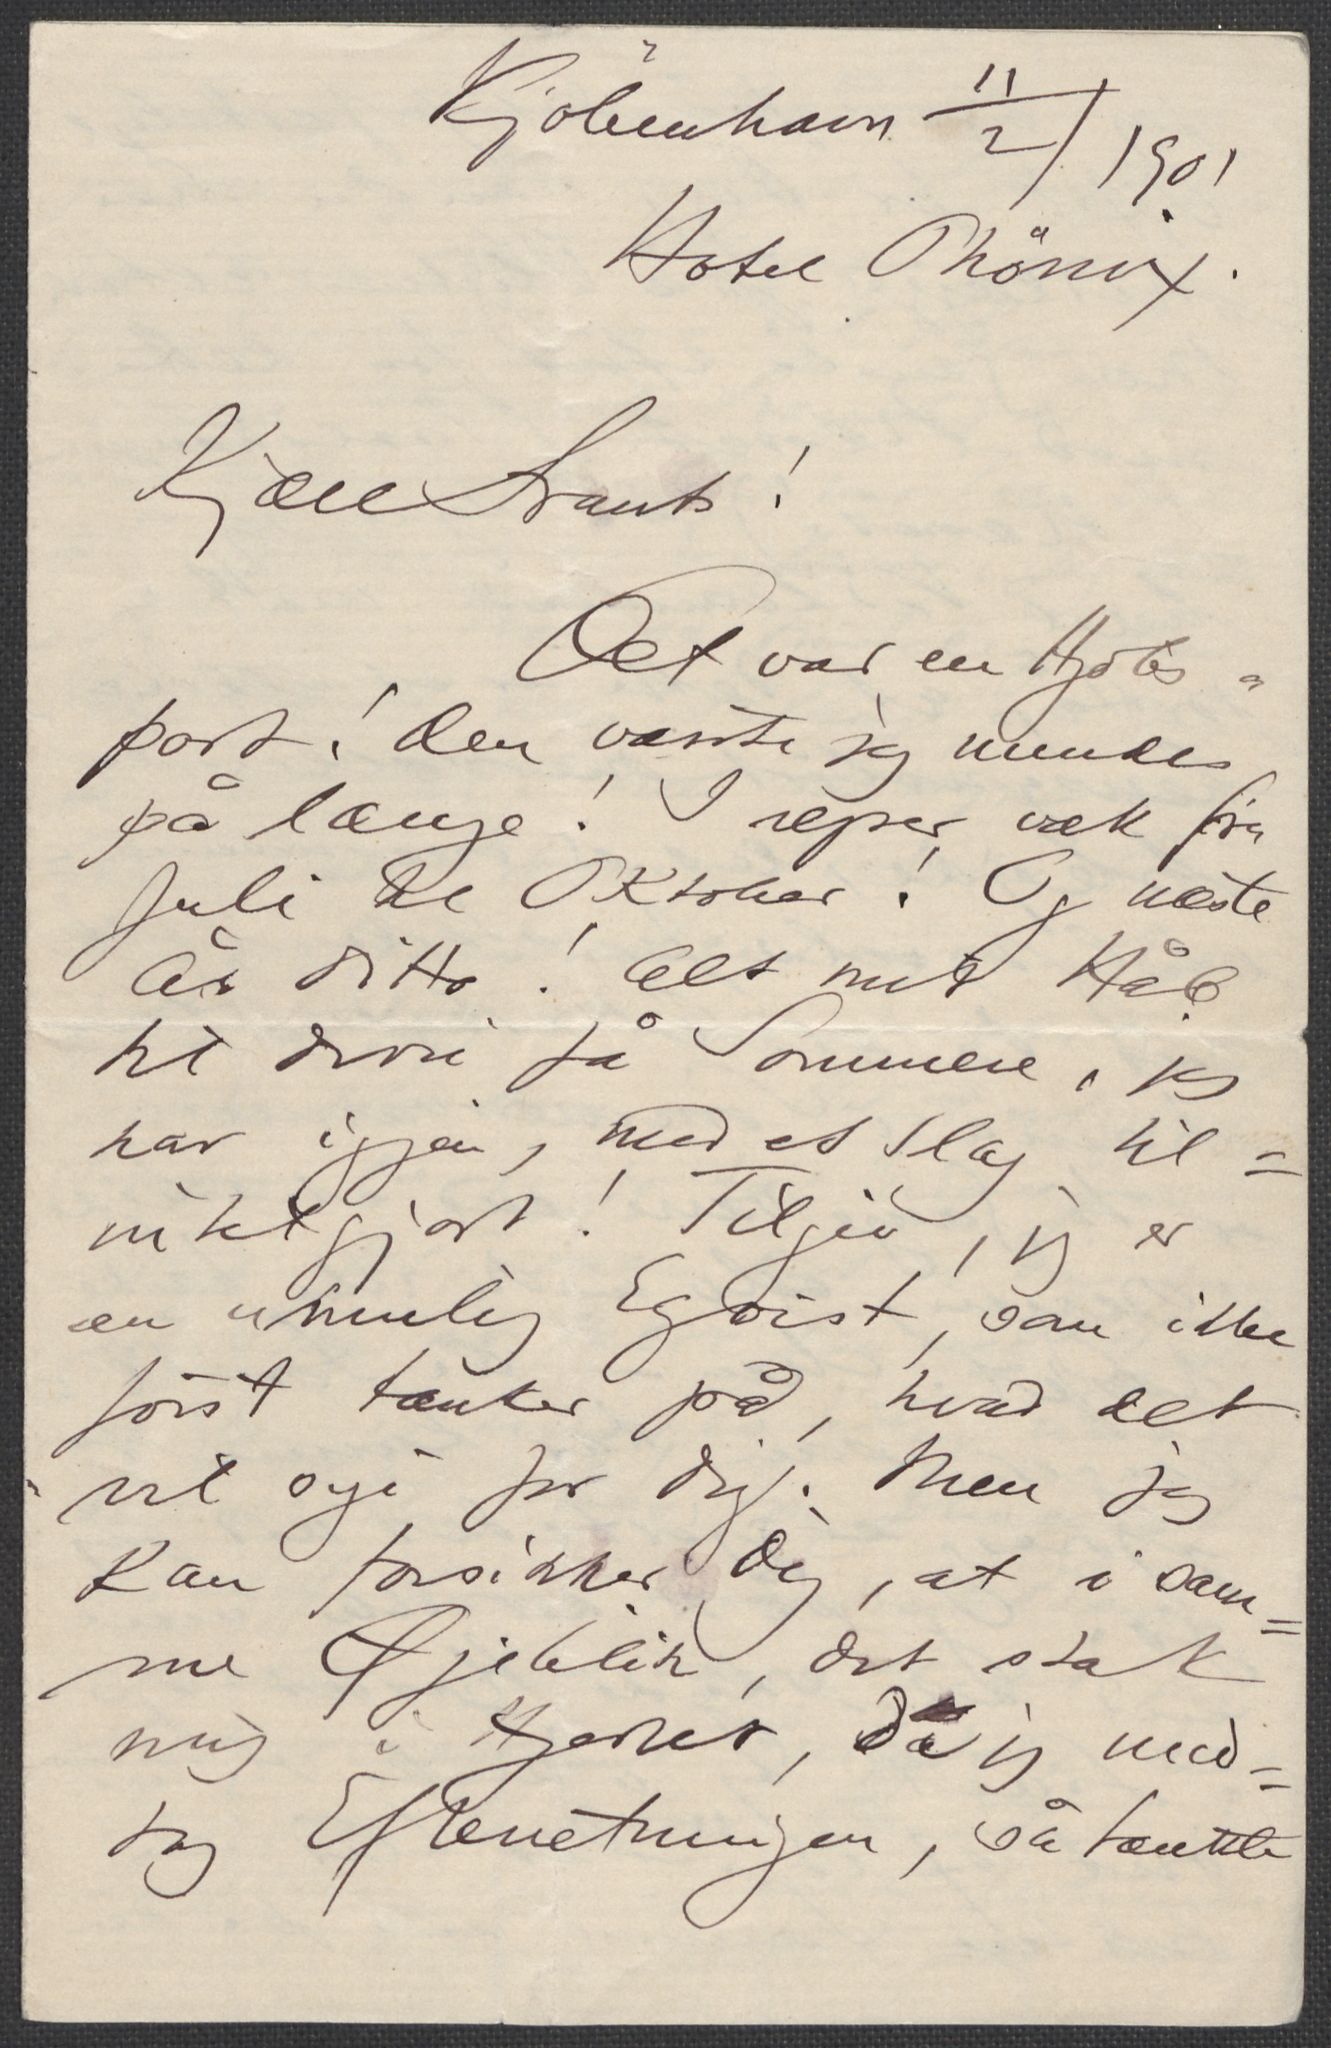 Kjöbenhavn 11/2 1901
Hotel Phönix.
Kjære Frants!
Det var en Hjobs=
post! Den væntet jeg mindes
på længe! I rejser væk fra
Juli til Oktober! Og næste
År ditto! Alt mit Håb
til de få Somre, jeg
har igjen, med et Slag til=
intetgjort! Tilgiv, jeg er
en umulig Egoist, som ikke
först tænker på, hvad det
vil sige for Dig. Men jeg
kan forsikker Dig, at i sam=
me Øjeblik, det stak
mig i Hjertet, da jeg mod=
tog Efterretningen, så tænkte